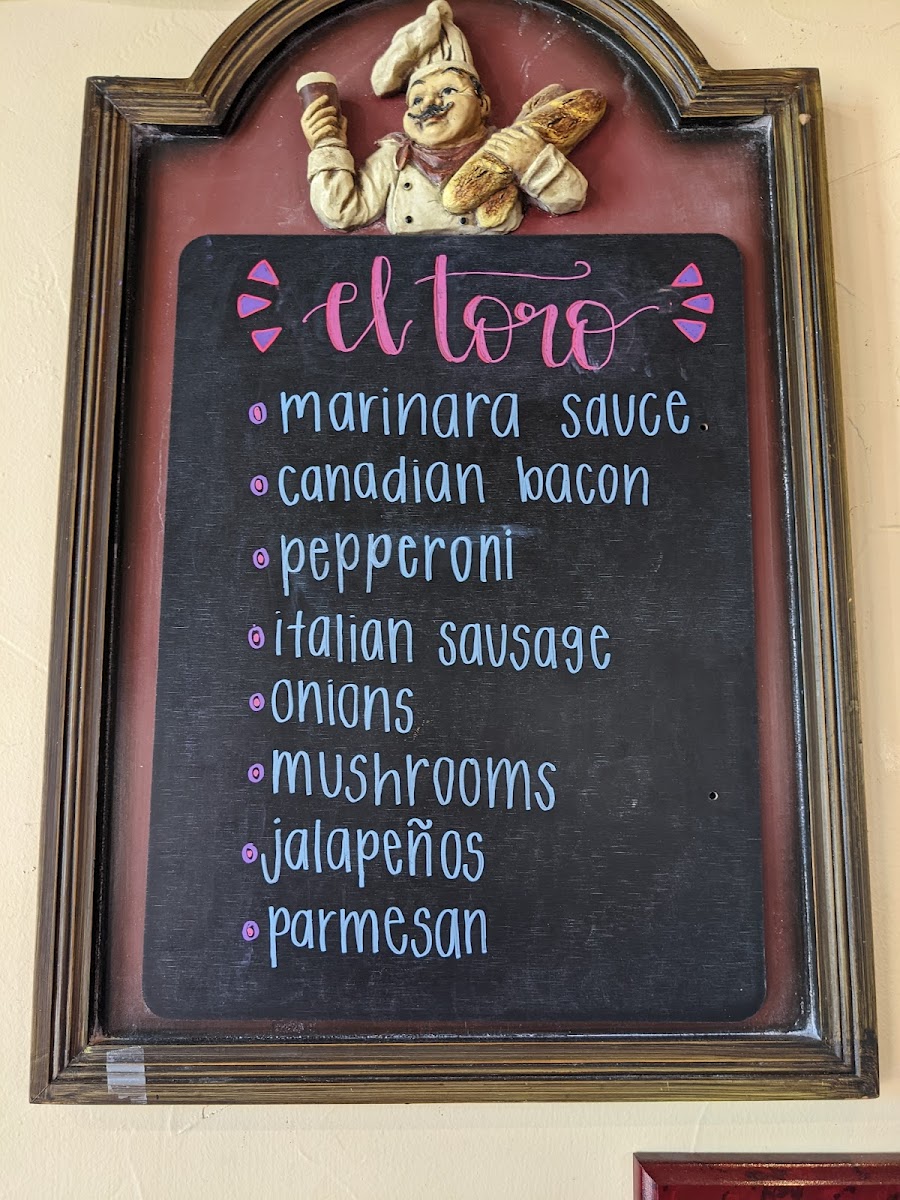 el toro
marinara sauce
canadian bacon
pepperoni
italian sausage
onions
mushrooms
jalapeños
parmesan